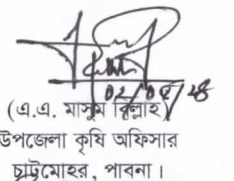 ০২/০৪/২৪
(এ.এ. মাসুম বিল্লাহ)
উপজেলা কৃষি অফিসার
চাটমোহর, পাবনা।